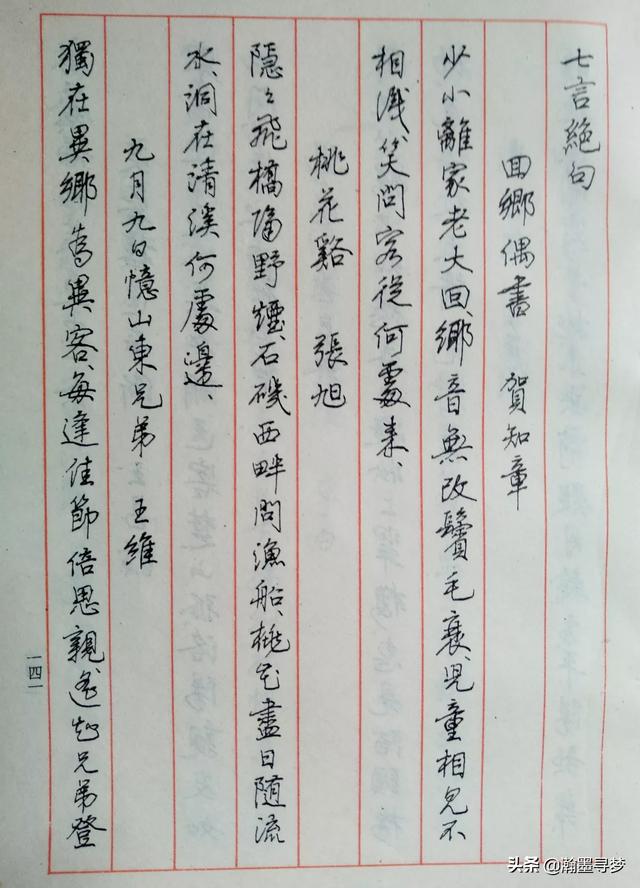 七言絕句
回鄉偶書 賀知章
少小離家老大回、鄉音無改鬢毛衰、兒童相見不
相識、笑問客從何處來、
桃花谿 張旭
隱々飛橋隔野煙、石磯西畔問漁船、桃花盡日隨流
水、洞在清溪何處邊、
九月九日憶山東兄弟 王維
獨在異鄉為異客、每逢佳節倍思親、遙知兄弟登
一四一
头条 @瀚墨寻梦